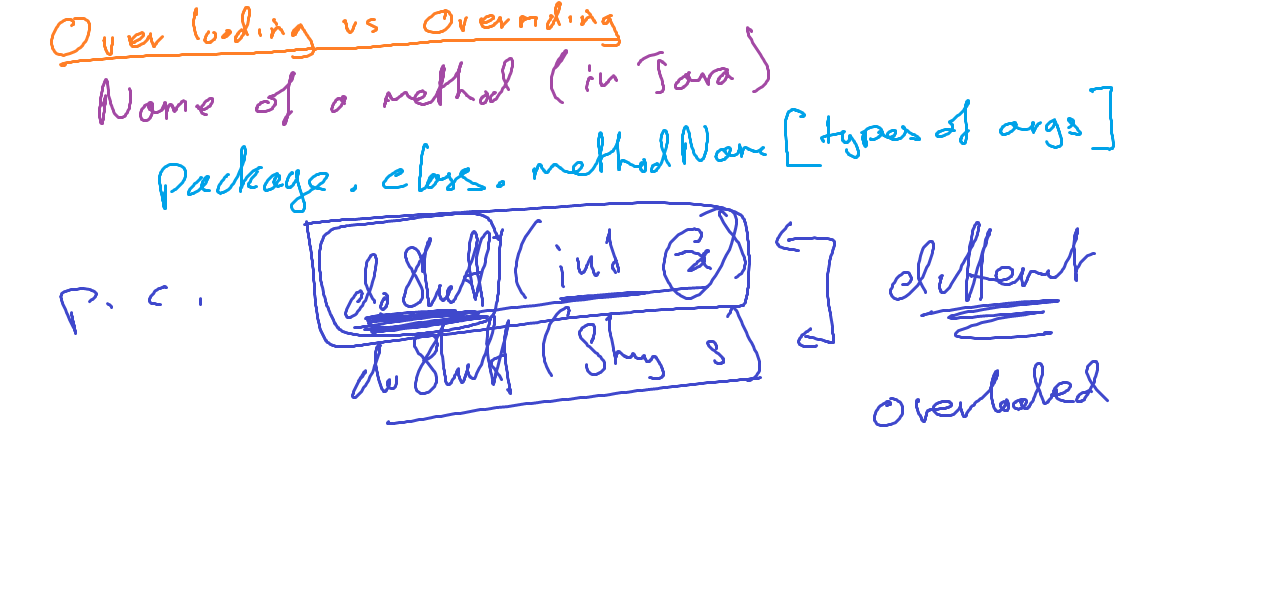 Overloading vs Overriding
Name of a method (in Java)
package.class.methodName [types of args]
p. c. doStuff (int x) different
doStuff (String s)
overloaded